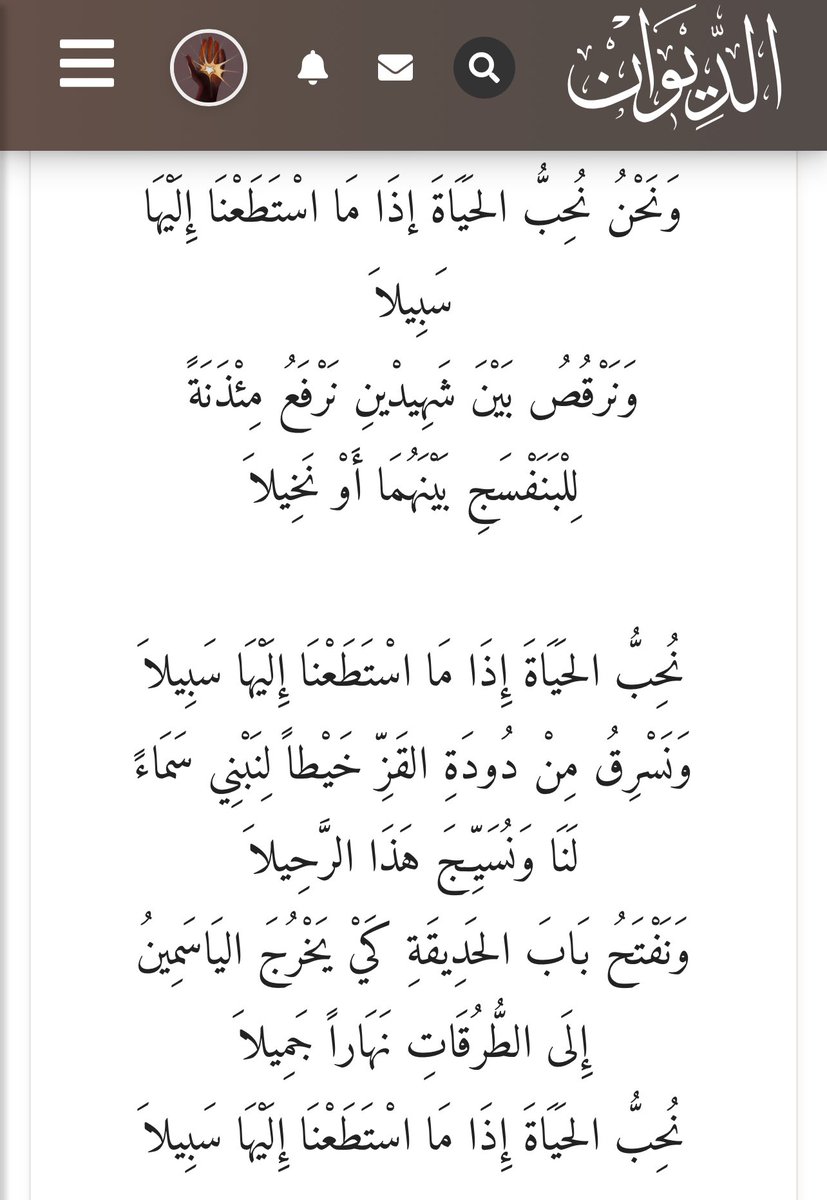 الدِّيوَان
وَنَحْنُ نُحِبُّ الحَيَاةَ إذَا مَا اسْتَطَعْنَا إِلَيْهَا
سَبِيلاَ
وَنَرْقُصُ بَيْنَ شَهِيدْينِ نَرْفَعُ مِئْذَنَةً
لِلْبَنَفْسَجِ بَيْنَهُمَا أَوْ نَخِيلاَ
نُحِبُّ الحَيَاةَ إِذَا مَا اسْتَطَعْنَا إِلَيْهَا سَبِيلاَ
وَنَسْرِقُ مِنْ دُودَةِ القَزِّ خَيْطاً لِنَبْنِي سَمَاءً
لَنَا وَنُسَيِّجَ هَذَا الرَّحِيلاَ
وَنَفْتَحُ بَابَ الحَدِيقَةِ كَيْ يَخْرُجَ اليَاسَمِينُ
إِلَى الطُّرُقَاتِ نَهَاراً جَمِيلاَ
نُحِبُّ الحَيَاةَ إِذَا مَا اسْتَطَعْنَا إِلَيْهَا سَبِيلاَ